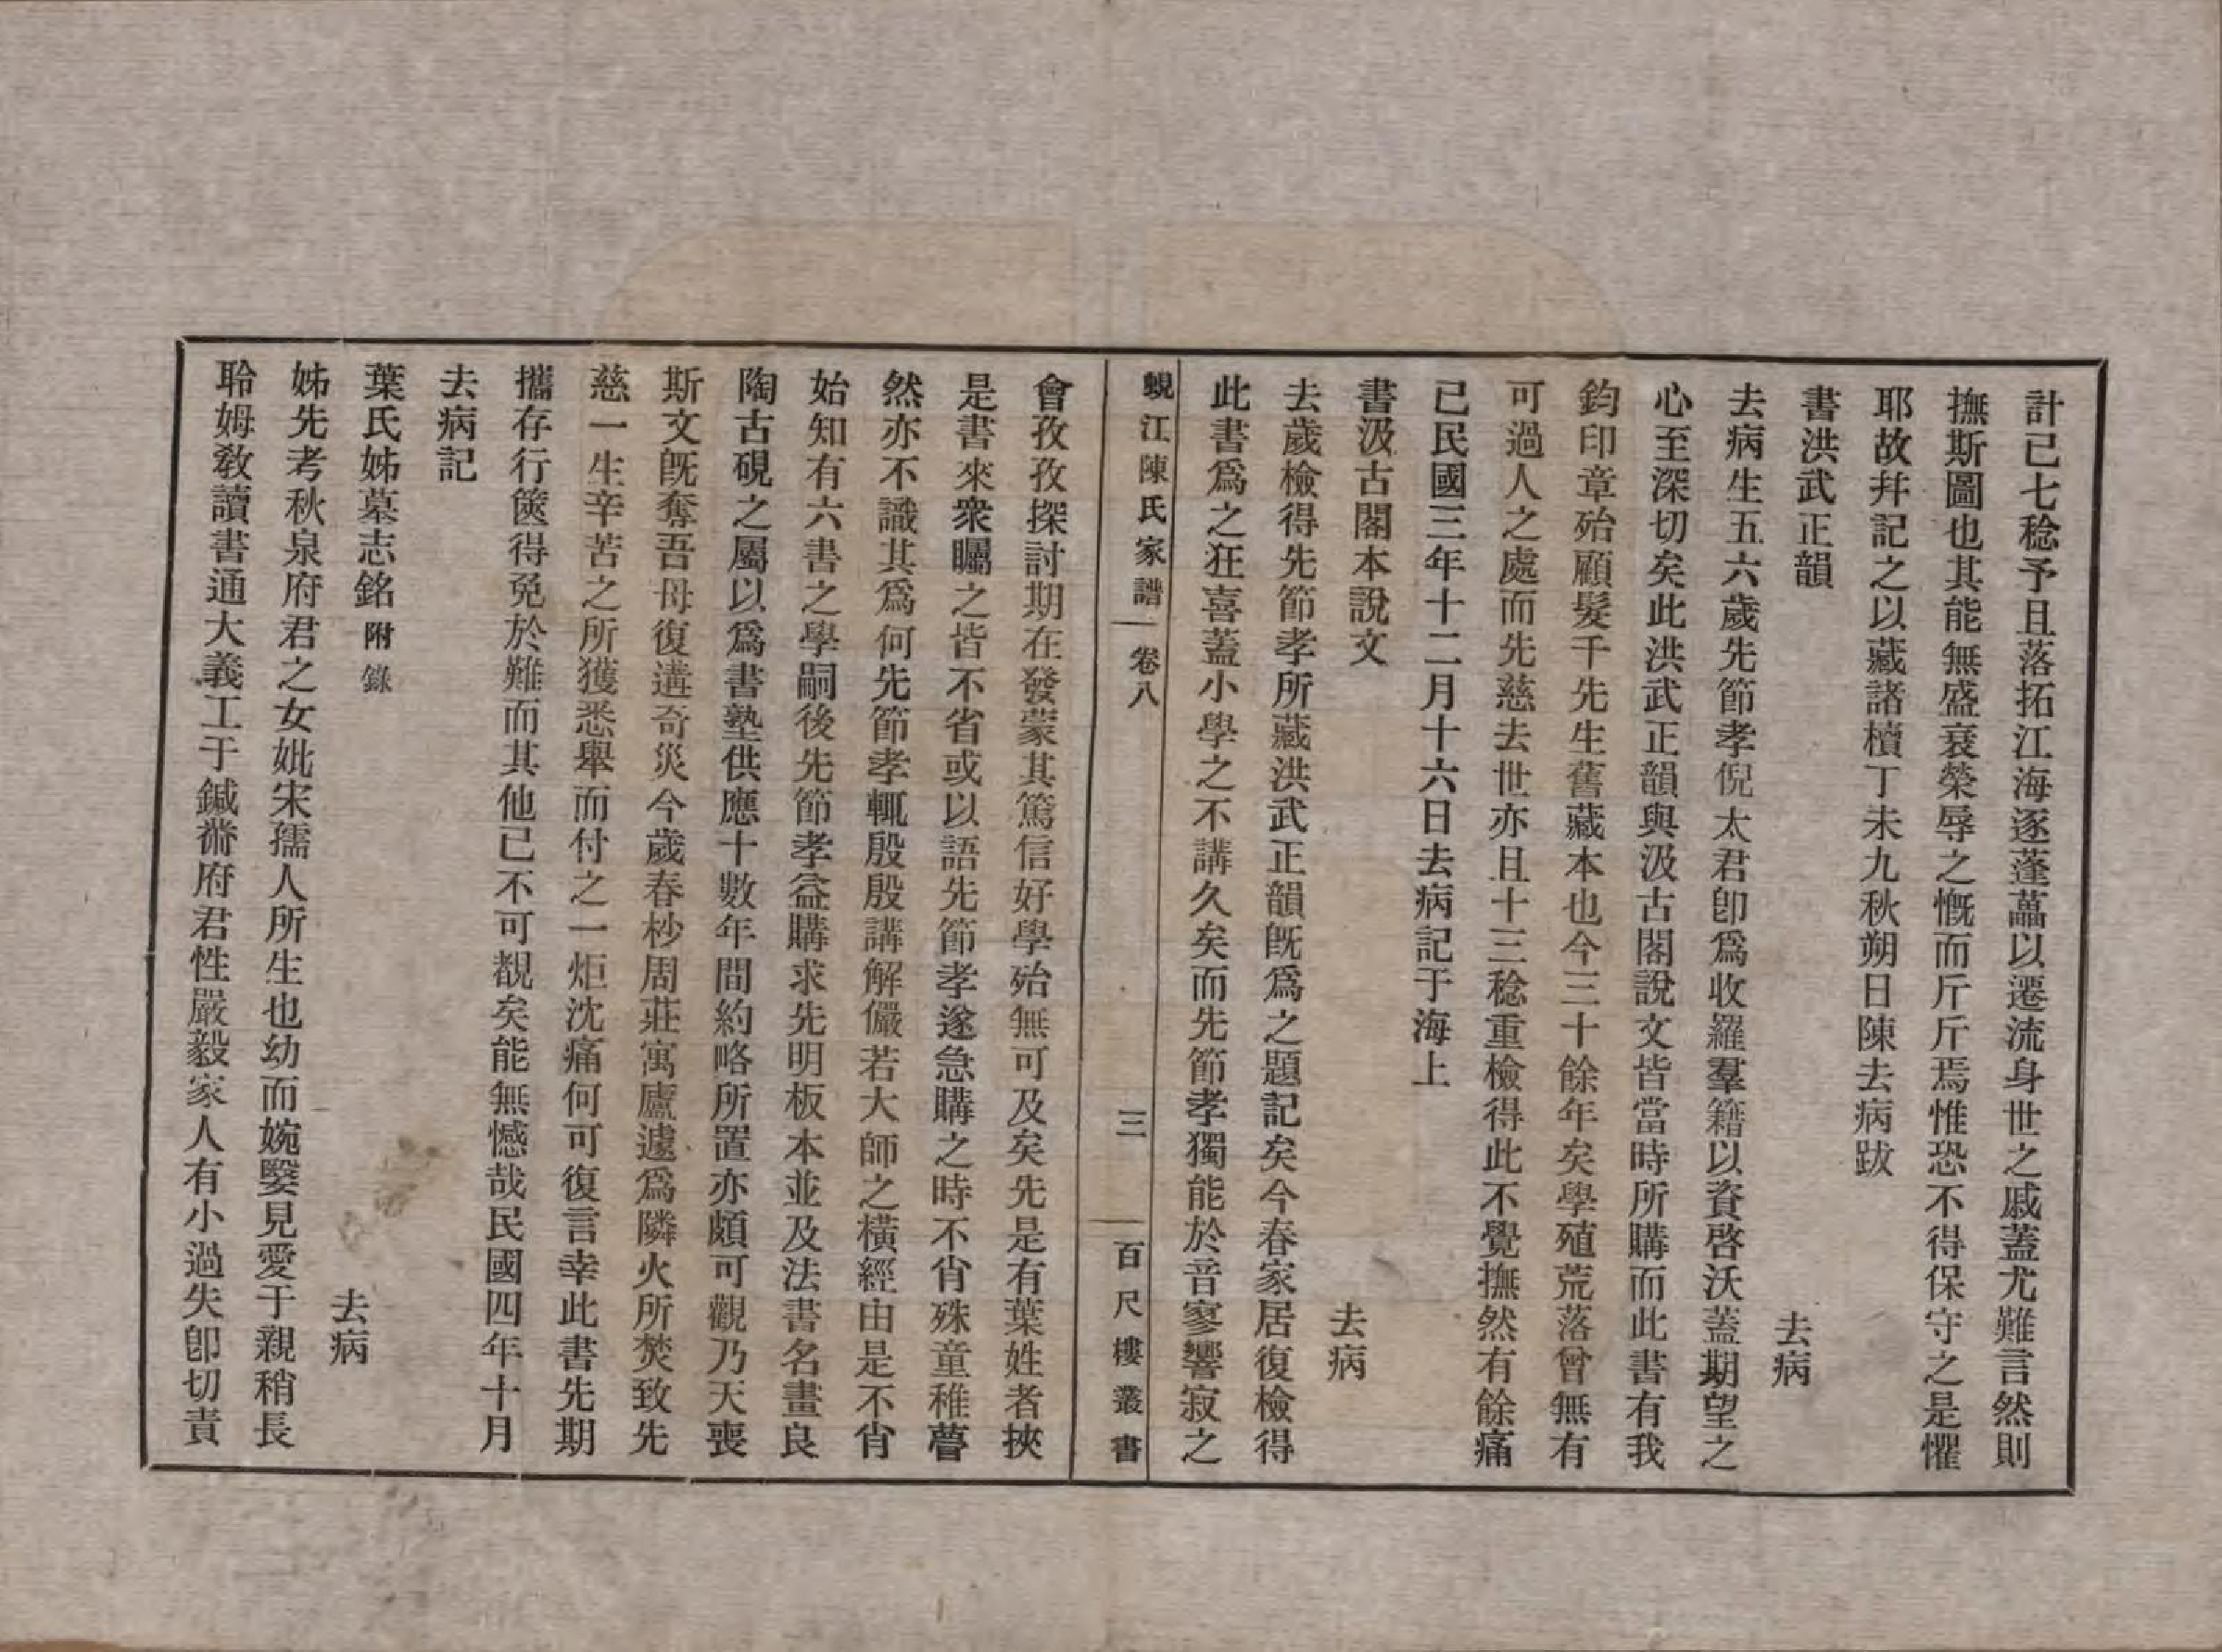 計已七稔予且落拓江海逐蓬藟以遷流身世之戚蓋尤難言然則
撫斯圖也其能無盛衰榮辱之慨而斤斤焉惟恐不得保守之是懼
耶故幷記之以藏諸櫝丁未九秋朔日陳去病跋
書洪武正韻
去病
去病生五六歲先節孝倪太君卽爲收羅羣籍以資啓沃蓋期望之
心至深切矣此洪武正韻與汲古閣說文皆當時所購而此書有我
鈞印章殆顧髮千先生舊藏本也今三十餘年矣學殖荒落曾無有
可過人之處而先慈去世亦且十三稔重檢得此不覺撫然有餘痛
已民國三年十二月十六日去病記于海上
書汲古閣本說文
去病
去歲檢得先節孝所藏洪武正韻旣爲之題記矣今春家居復檢得
此書爲之狂喜蓋小學之不講久矣而先節孝獨能於音寥響寂之
蜆江陳氏家譜 卷八 三 百尺樓叢書
會孜孜探討期在發蒙其篤信好學殆無可及矣先是有葉姓者挾
是書來衆矚之皆不省或以語先節孝遂急購之時不肖殊童稚瞢
然亦不識其爲何先節孝輒殷殷講解儼若大師之橫經由是不肖
始知有六書之學嗣後先節孝益購求先明板本並及法書名畫良
陶古硯之屬以爲書塾供應十數年間約略所置亦頗可觀乃天喪
斯文旣奪吾母復遘奇災今歲春杪周莊寓廬遽爲隣火所焚致先
慈一生辛苦之所獲悉舉而付之一炬沈痛何可復言幸此書先期
攜存行篋得免於難而其他已不可覩矣能無憾哉民國四年十月
去病記
葉氏姊墓志銘附錄
去病
姊先考秋泉府君之女妣宋孺人所生也幼而婉嫛見愛于親稍長
聆姆教讀書通大義工于鍼黹府君性嚴毅家人有小過失卽切責